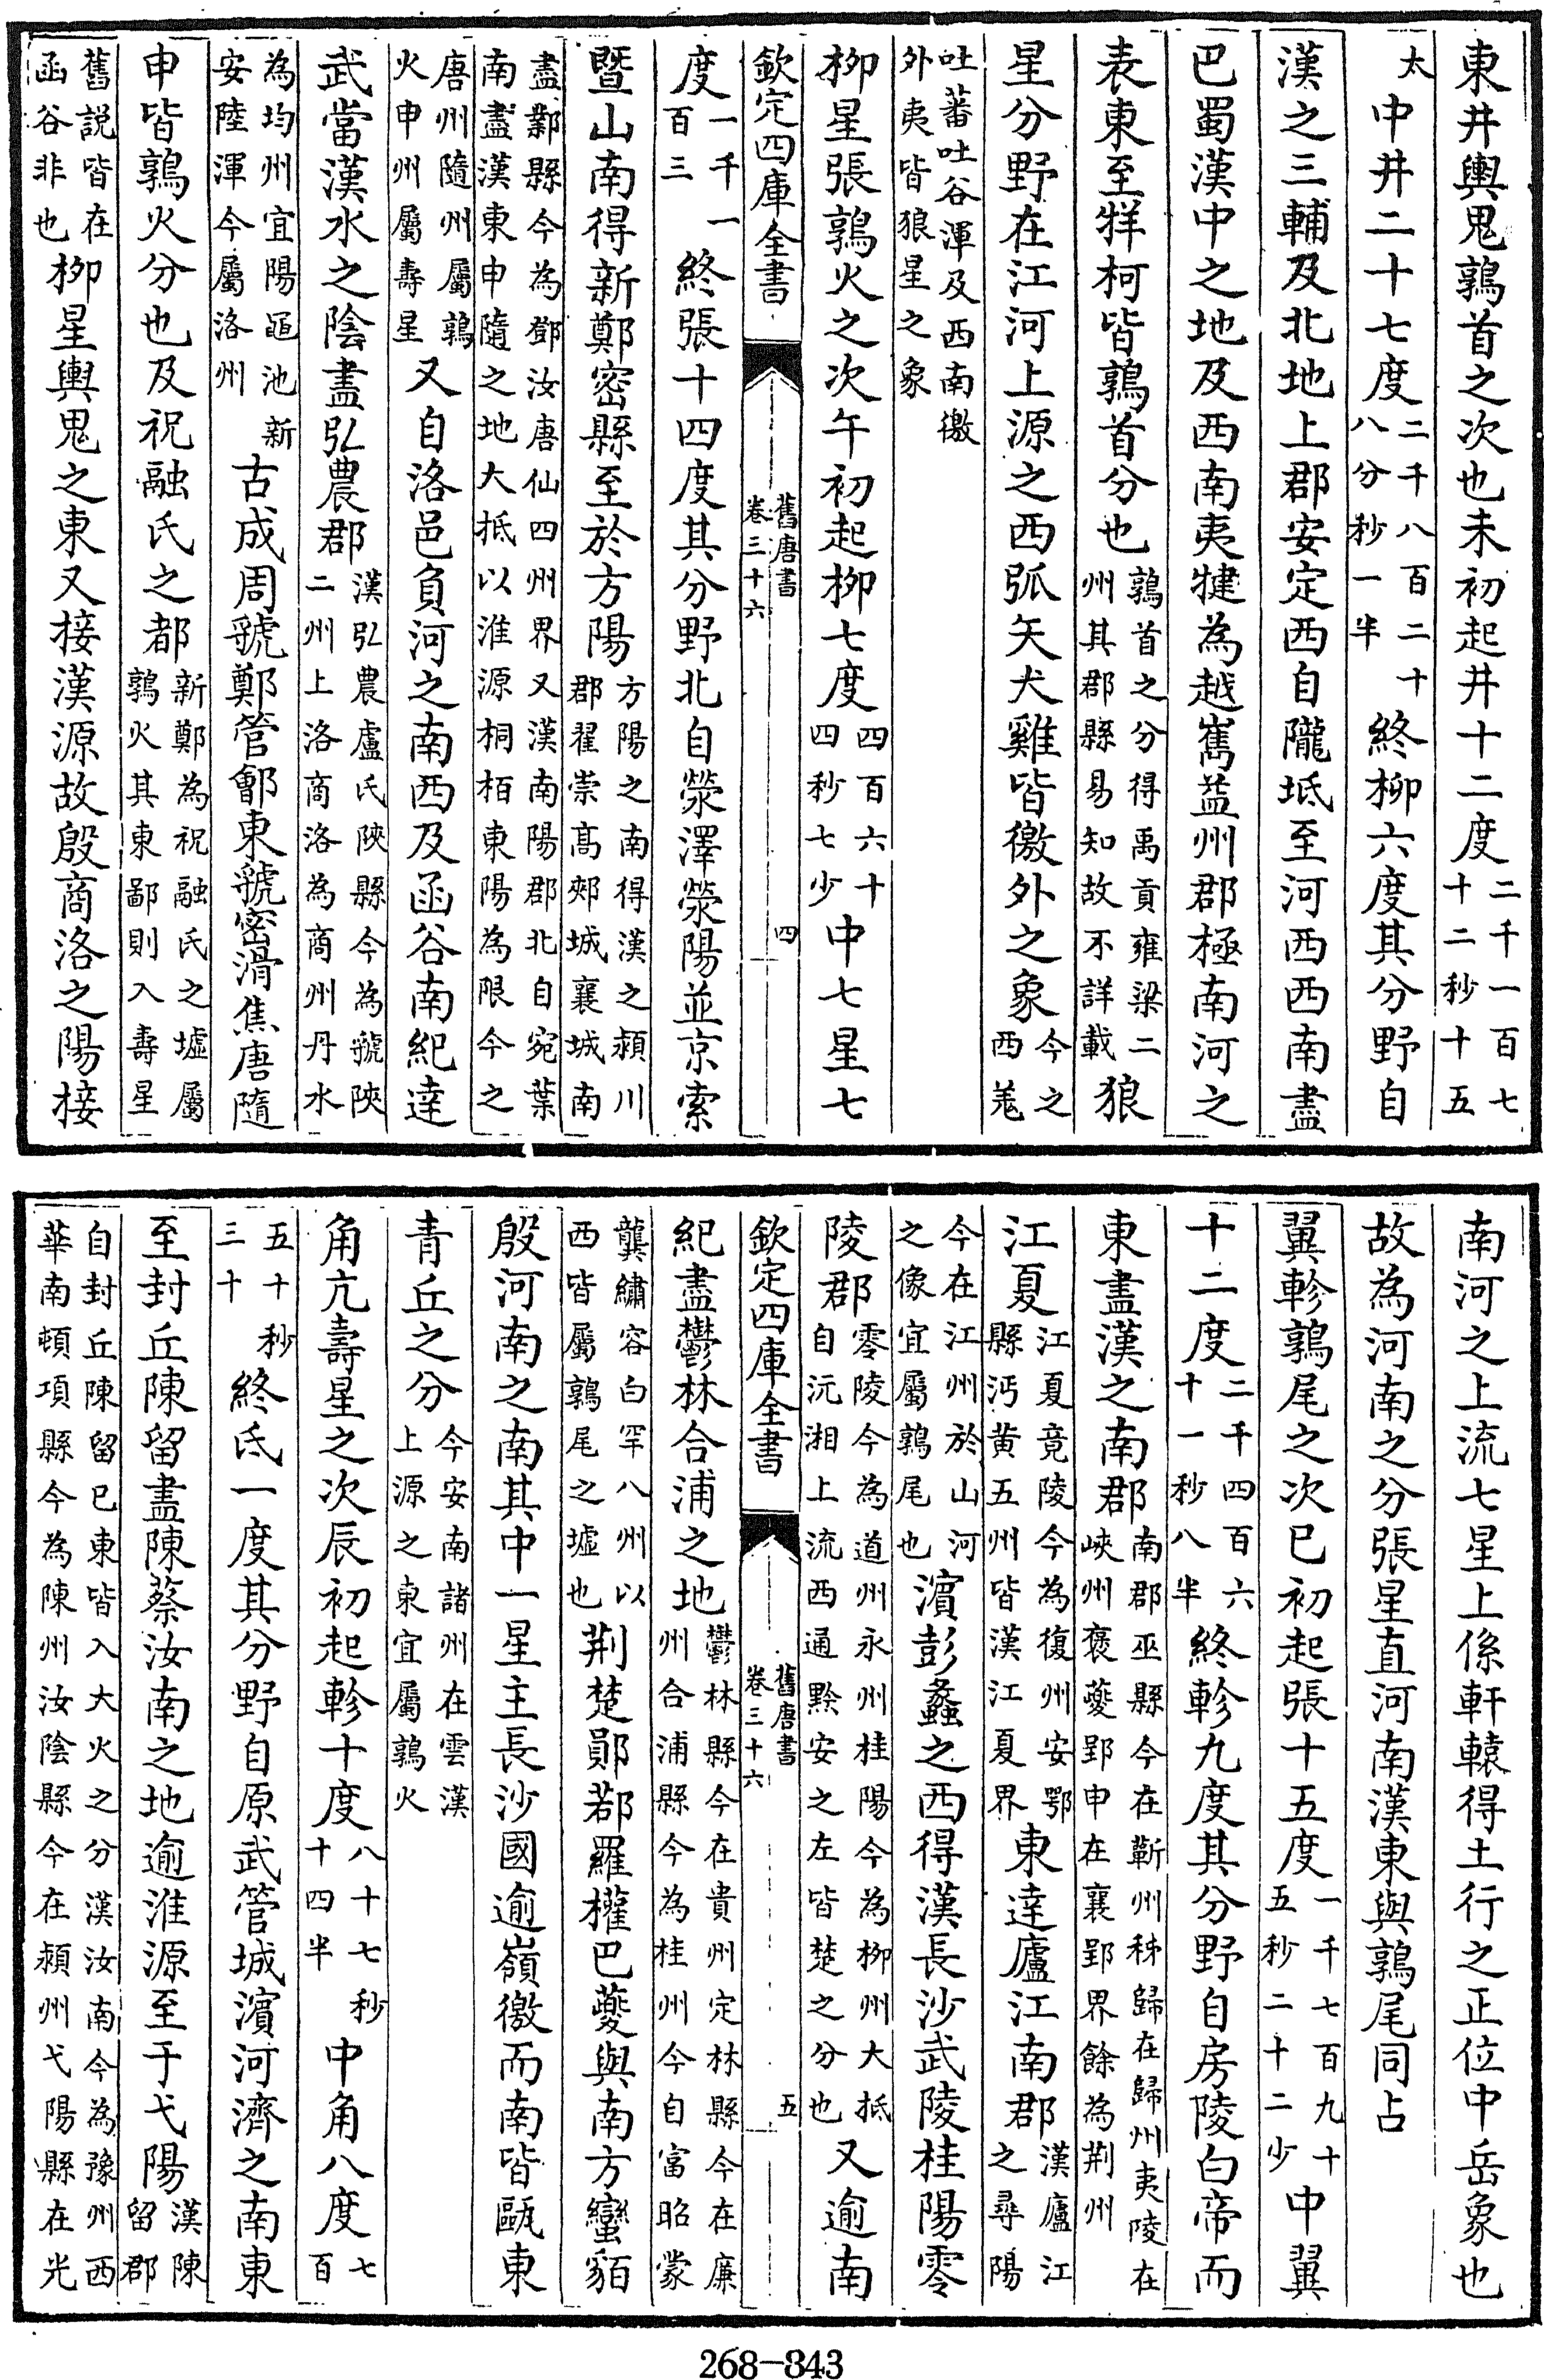 東井輿鬼鶉首之次也未初起井十二度二千一百七十二秒十五
太中井二十七度二千八百二十八分秒一半終柳六度其分野自
漢之三輔及北地上郡安定西自隴坻至河西西南盡
巴蜀漢中之地及西南夷犍為越嶲益州郡極南河之
表東至牂柯皆鶉首分也鶉首之分得禹貢雍梁二州其郡縣易知故不詳載狼
星分野在江河上源之西弧矢犬雞皆徼外之象今之西羗
吐蕃吐谷渾及西南徼外夷皆狼星之象
柳星張鶉火之次午初起柳七度四百六十四秒七少中七星七
欽定四庫全書 舊唐書卷三十六 四
度一千一百三終張十四度其分野北自滎澤滎陽並京索
暨山南得新鄭密縣至於方陽方陽之南得漢之潁川郡翟崇髙郟城襄城南
盡鄴縣今為鄧汝唐仙四州界又漢南陽郡北自宛葉南盡漢東申隨之地大抵以淮源桐栢東陽為限今之
唐州隨州屬鶉火申州屬壽星又自洛邑負河之南西及函谷南紀達
武當漢水之陰盡弘農郡漢弘農盧氏陜縣今為虢陜二州上洛商洛為商州丹水
為均州宜陽黽池新安陸渾今屬洛州古成周虢鄭管鄶東虢密滑焦唐隨
申皆鶉火分也及祝融氏之都新鄭為祝融氏之墟屬鶉火其東鄙則入壽星
舊説皆在函谷非也柳星輿鬼之東又接漢源故殷商洛之陽接
南河之上流七星上係軒轅得土行之正位中岳象也
故為河南之分張星直河南漢東與鶉尾同占
翼軫鶉尾之次巳初起張十五度一千七百九十五秒二十二少中翼
十二度二千四百六十一秒八半終軫九度其分野自房陵白帝而
東盡漢之南郡南郡巫縣今在䕫州秭歸在歸州夷陵在峽州襄䕫郢申在襄郢界餘為荆州
江夏江夏竟陵今為復州安鄂縣沔黄五州皆漢江夏界東達廬江南郡漢廬江之尋陽
今在江州於山河之像宜屬鶉尾也濵彭蠡之西得漢長沙武陵桂陽零
陵郡零陵今為道州永州桂陽今為郴州大抵自沅湘上流西通黔安之左皆楚之分也又逾南
欽定四庫全書 舊唐書卷三十六 五
紀盡鬱林合浦之地鬱林縣今在貴州定林縣今在廉州合浦縣今為桂州今自富昭蒙
龔繡容白罕八州以西皆屬鶉尾之墟也荆楚鄖鄀羅權巴䕫與南方蠻貊
殷河南之南其中一星主長沙國逾嶺徼而南皆甌東
青丘之分今安南諸州在雲漢上源之東宜屬鶉火
角亢壽星之次辰初起軫十度八十七秒十四半中角八度七百
五十秒三十終氐一度其分野自原武管城濵河濟之南東
至封丘陳留盡陳蔡汝南之地逾淮源至于弋陽漢陳留郡
自封丘陳留已東皆入大火之分漢汝南今為豫州西華南頓項縣今為陳州汝陰縣今在潁州弋陽縣在光
268-843